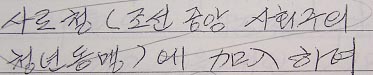 사로청 (조선 중앙 사회주의
청년동맹)에 加入하여